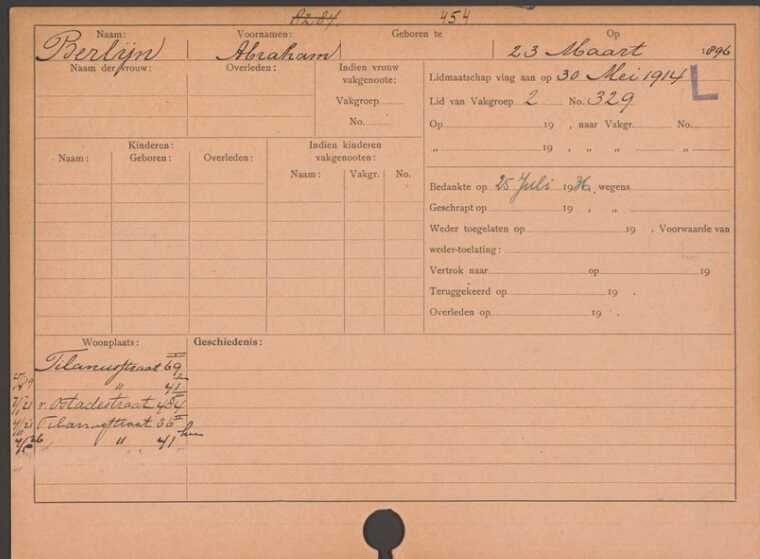 454
Naam: Voornamen: Geboren te Op
Berlijn Abraham 23 Maart 1896
Naam der vrouw: Overleden: Indien vrouw vakgenoote:
Vakgroep
No.
Lidmaatschap ving aan op 30 Mei 1914 L
Lid van Vakgroep 2 No. 329
Op 19 , naar Vakgr. No.
„ 19 , „ „ „
Kinderen: Indien kinderen vakgenooten:
Naam: Geboren: Overleden: Naam: Vakgr. No.
Bedankte op 25 Juli 1936, wegens
Geschrapt op 19 , „
Weder toegelaten op 19 . Voorwaarde van
weder-toelating:
Vertrok naar op 19
Teruggekeerd op 19 .
Overleden op 19 .
Woonplaats: Geschiedenis:
Tilanusstraat 69
„ 41
v. Ostadestraat 454
Tilanusstraat 36 II
„ 41 hs